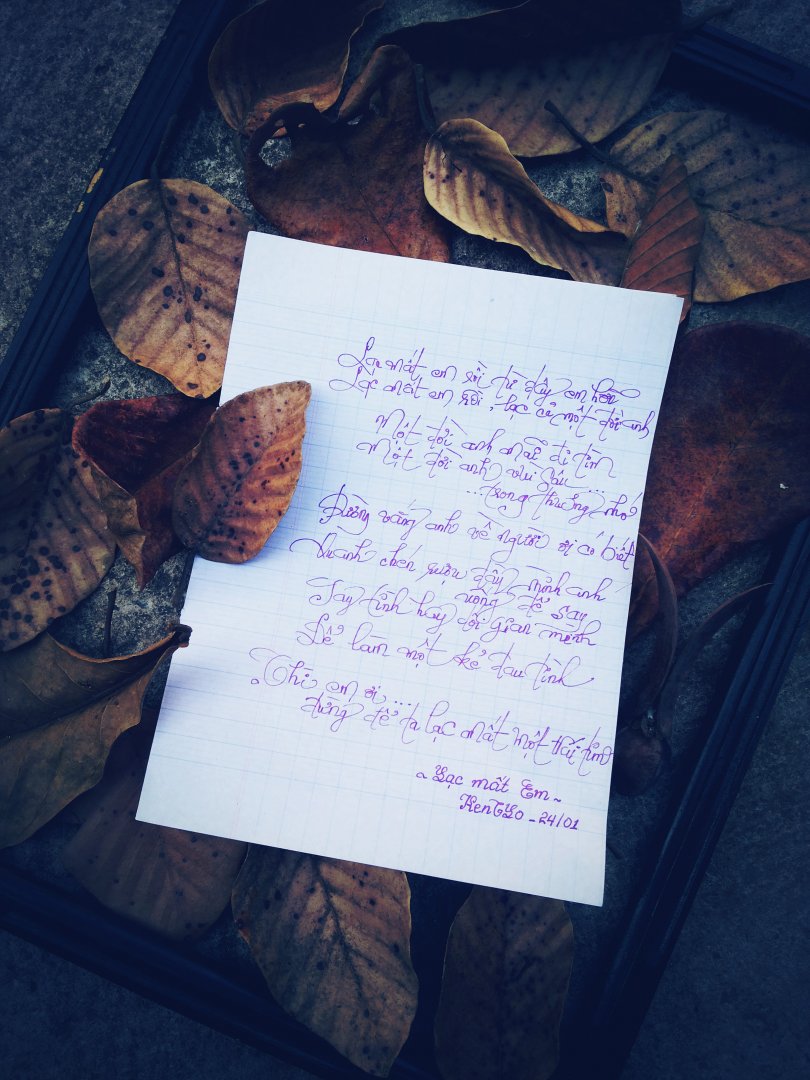 Lạc mất em rồi thì đây em hỡi
Lạc mất em rồi, lạc cả một đời anh
Một đời anh mãi đi tìm
Một đời anh vùi sâu ...
... trong thương nhớ
Đường vắng anh về người ơi có biết
Quanh chén rượu đầy mình anh
uống để say
Say tình hay dối gian mình
Để làm một kẻ đau tình
Thì em ơi ...
đừng để ta lạc mất một trái tim
~ Lạc mất Em ~
KenTYo - 24/01